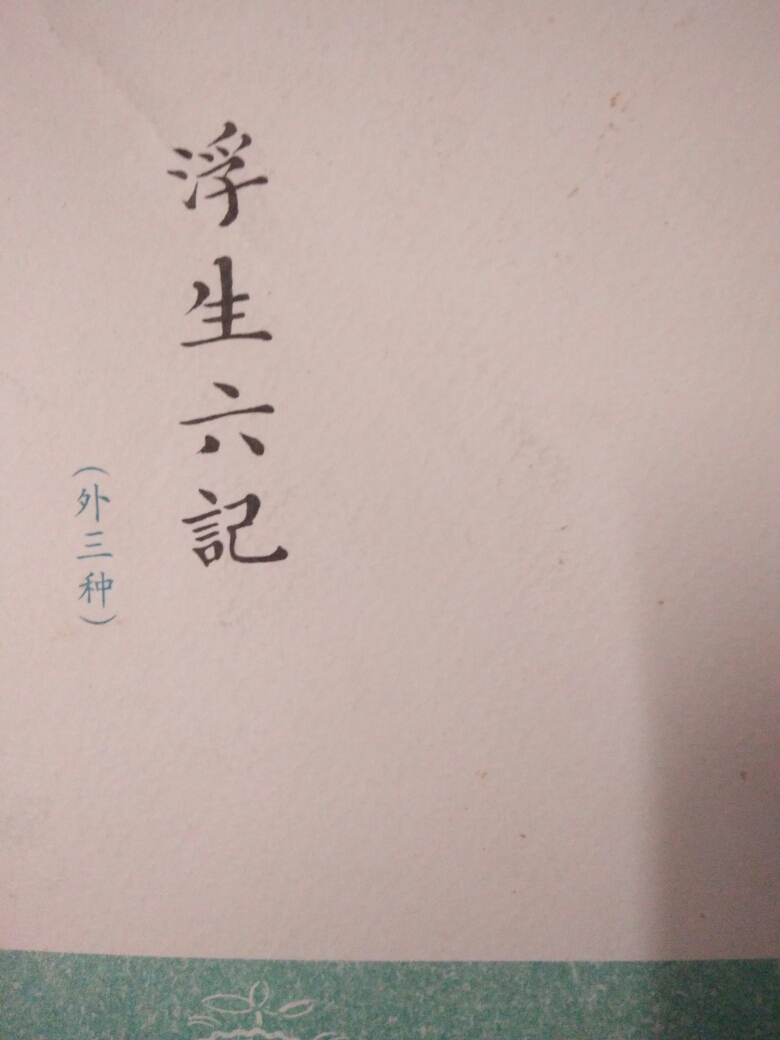 浮生六記
（外三种）